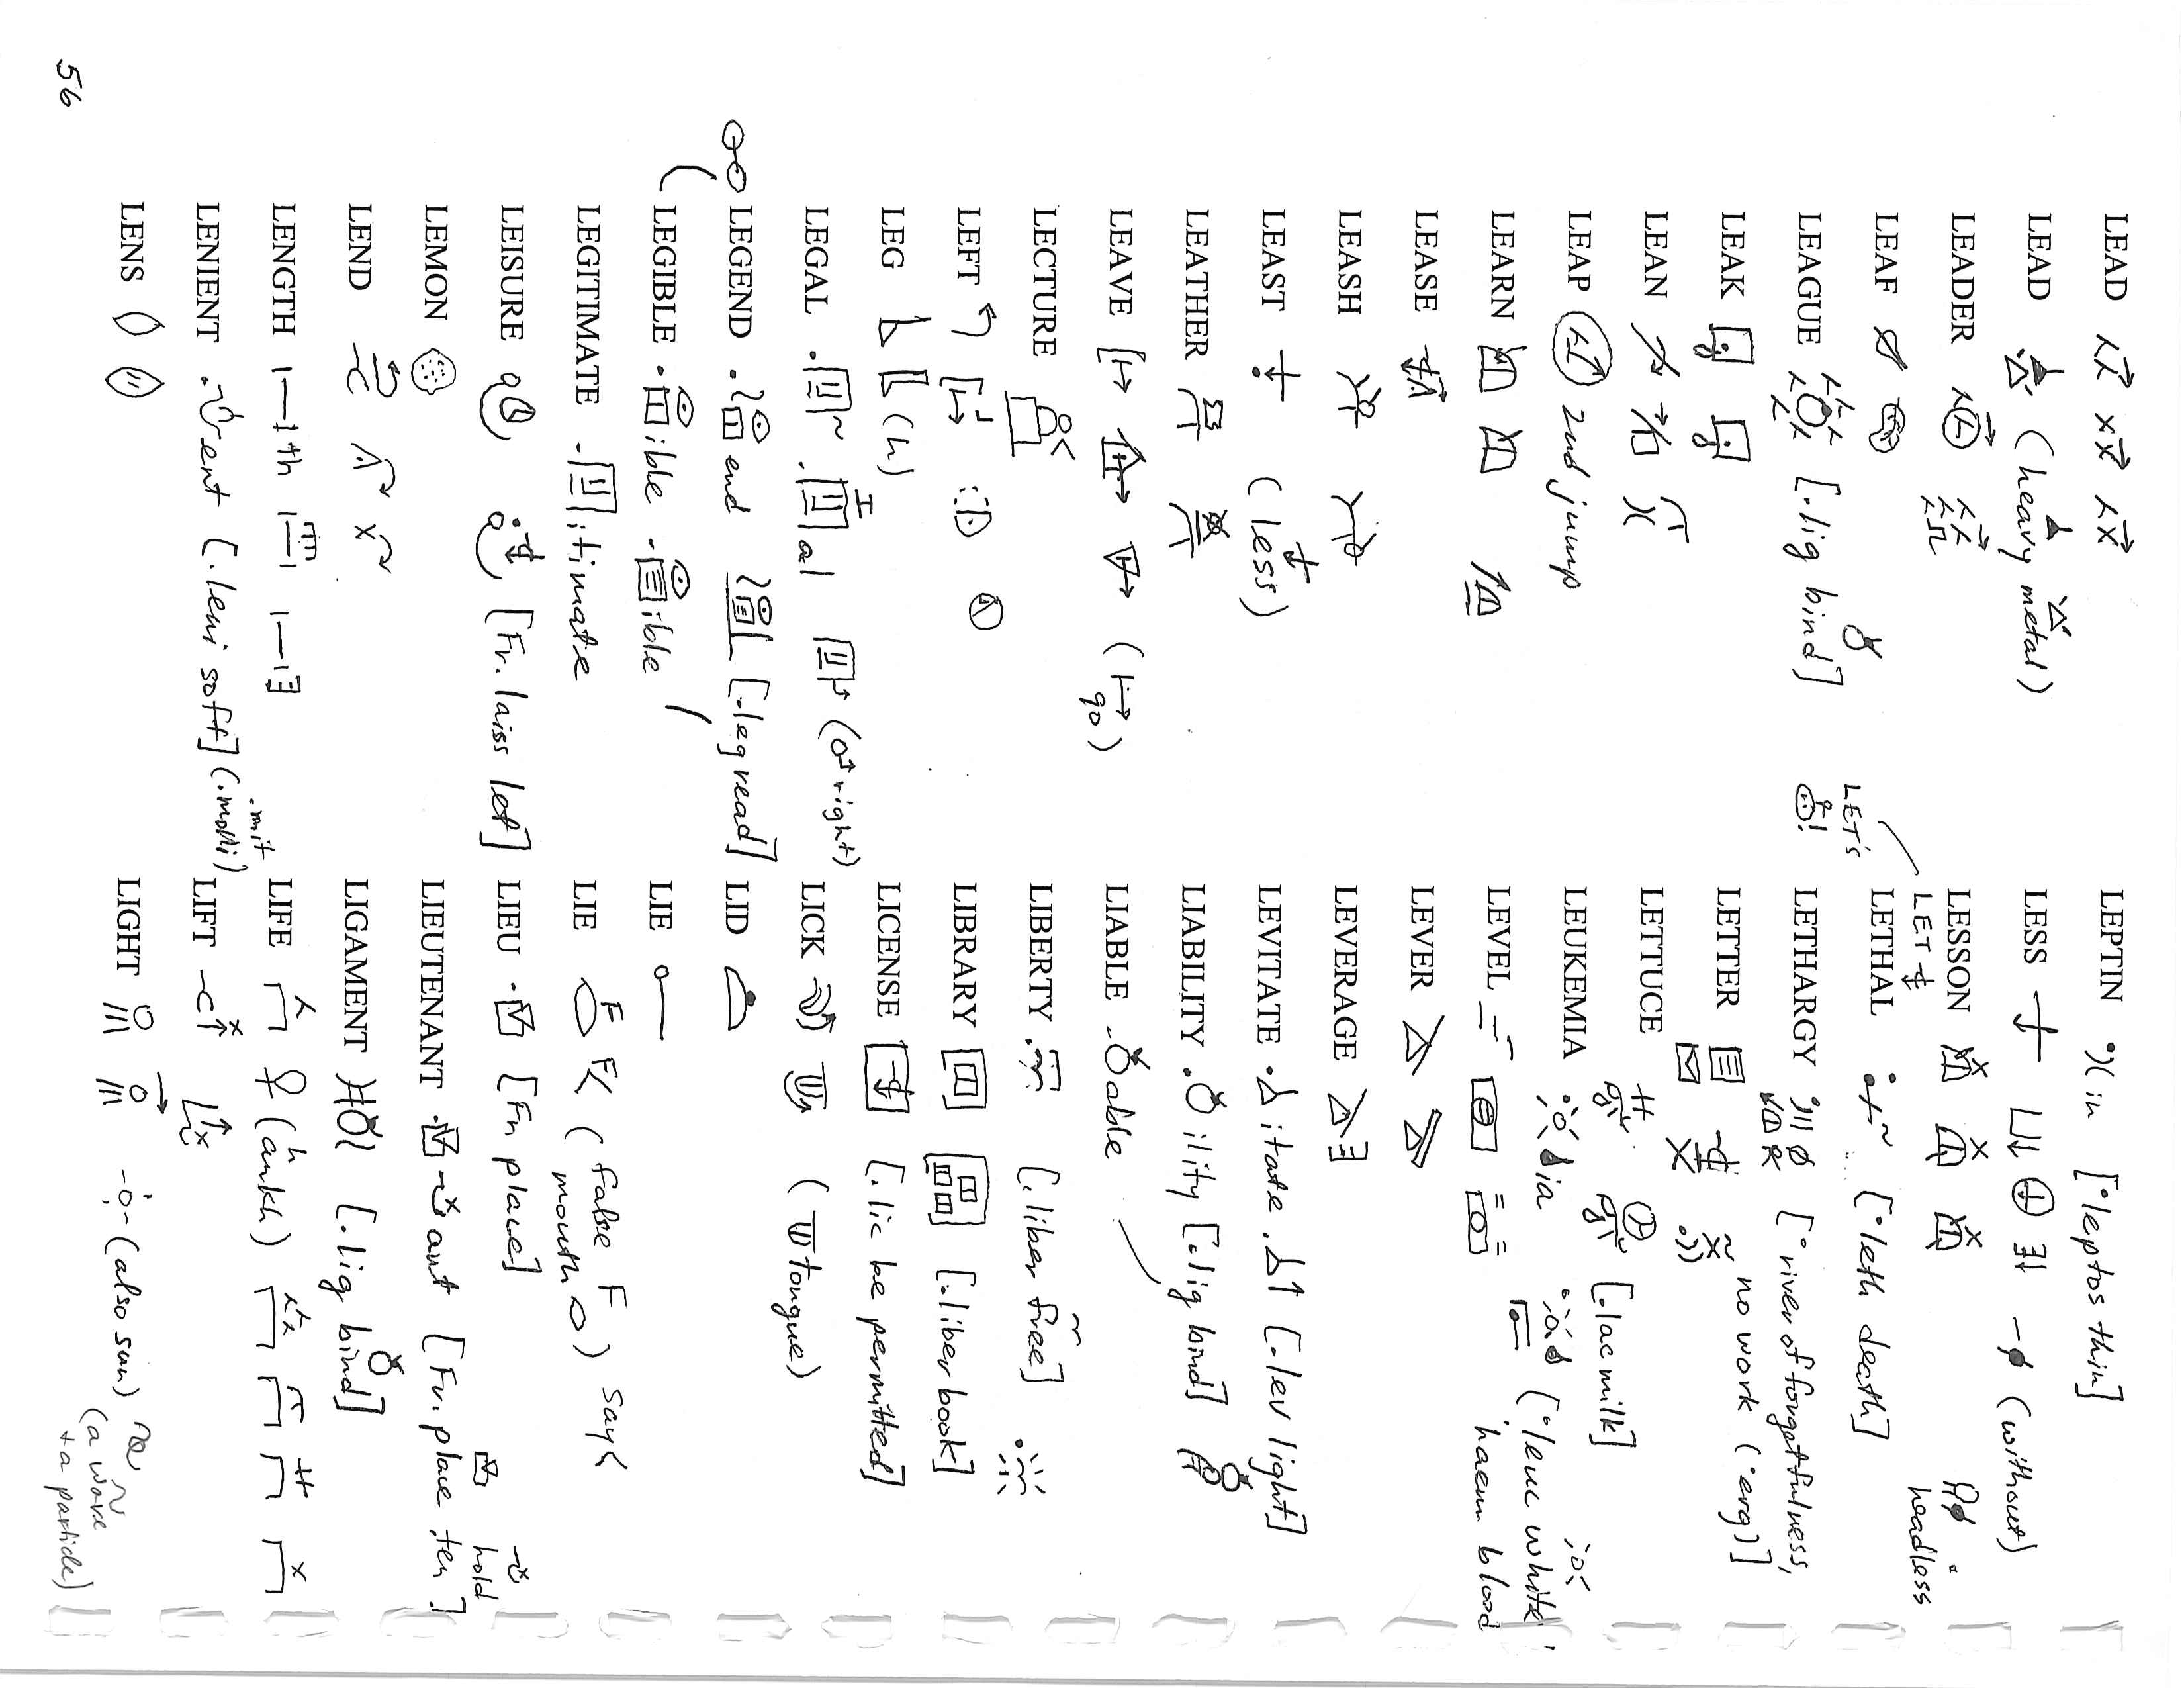 LEAD
LEAD (heavy metal)
LEADER
LEAF
LEAGUE [.lig bind]
LEAK
LEAN
LEAP 2nd jump
LEARN
LEASE
LEASH
LEAST (less)
LEATHER
LEAVE (go)
LECTURE
LEFT
LEG (h)
LEGAL al (right)
LEGEND end [.leg read]
LEGIBLE ible ible
LEGITIMATE itimate
LEISURE [Fr. laiss let]
LEMON
LEND
LENGTH th
LENIENT ent [.leni soft] (.molli) .mit
LENS
LEPTIN in [°leptos thin]
LESS (without)
LESSON headless
LET
LET's
LETHAL [°leth death]
LETHARGY [° river of forgetfulness,
no work (°erg)]
LETTER
LETTUCE [.lac milk]
LEUKEMIA ia [°leuc white
haem blood
LEVEL
LEVER
LEVERAGE
LEVITATE itate [.lev light]
LIABILITY ility [.lig bind]
LIABLE able
LIBERTY [.liber free]
LIBRARY [.liber book]
LICENSE [.lic be permitted]
LICK (tongue)
LID
LIE
LIE F F (false F mouth) say
LIEU [Fr. place]
LIEUTENANT ant [Fr. place .ten] hold
LIGAMENT [.lig bind]
LIFE (ankh) h
LIFT
LIGHT (also sun) (a wave
+ a particle)
56